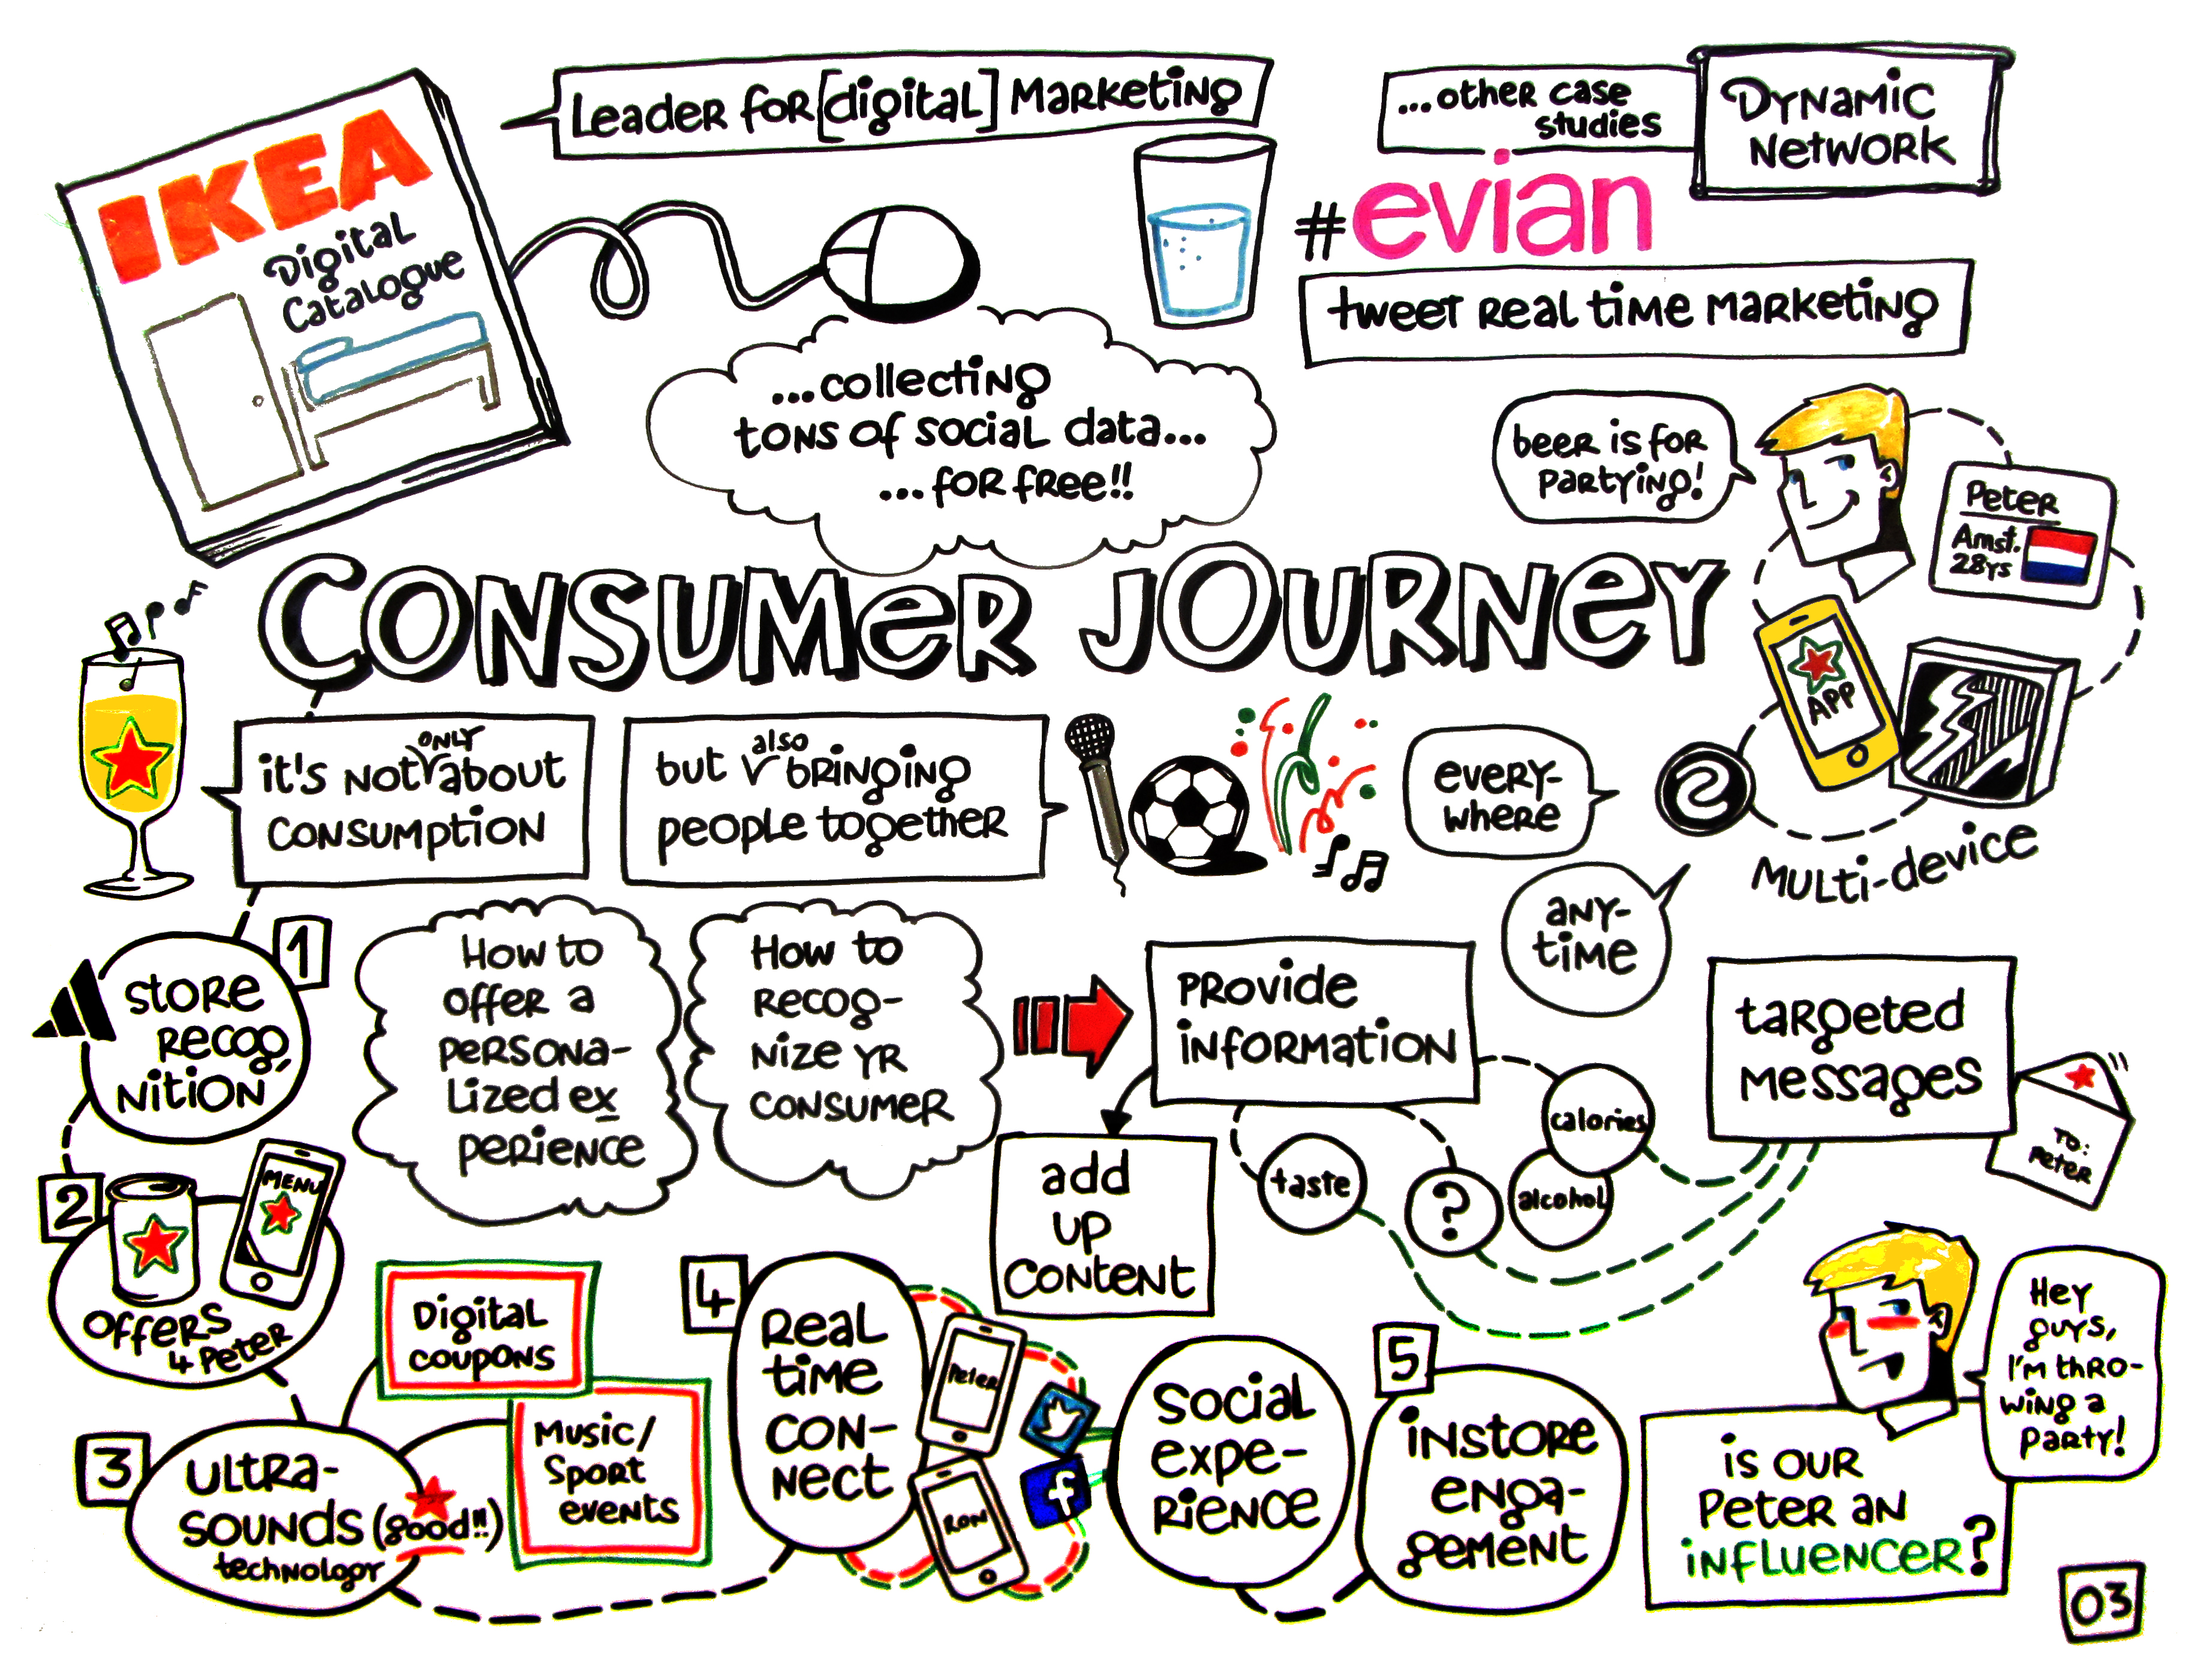 IKEA
Digital
Catalogue
Leader for [digital] Marketing
...other case
studies
Dynamic
Network
#evian
tweet real time marketing
...collecting
tons of social data...
...for free!!
beer is for
partying!
Peter
Amst.
28ys
CONSUMER JOURNEY
APP
it's not only about
consumption
but also bringing
people together
every-
where
any-
time
Multi-device
1
store
recog,
nition
How to
offer a
persona-
lized ex
perience
How to
recog-
nize yr
consumer
provide
information
add
up
content
taste
?
calories
alcohol
targeted
messages
To:
Peter
2
MENU
offers
4 Peter
Digital
coupons
Music/
Sport
events
3
ultra-
sounds (good!!)
technology
4
Real
time
con-
nect
Peter
Ron
f
social
expe-
rience
5
instore
enga-
gement
Hey
guys,
I'm thro-
wing a
party!
is our
Peter an
influencer?
03